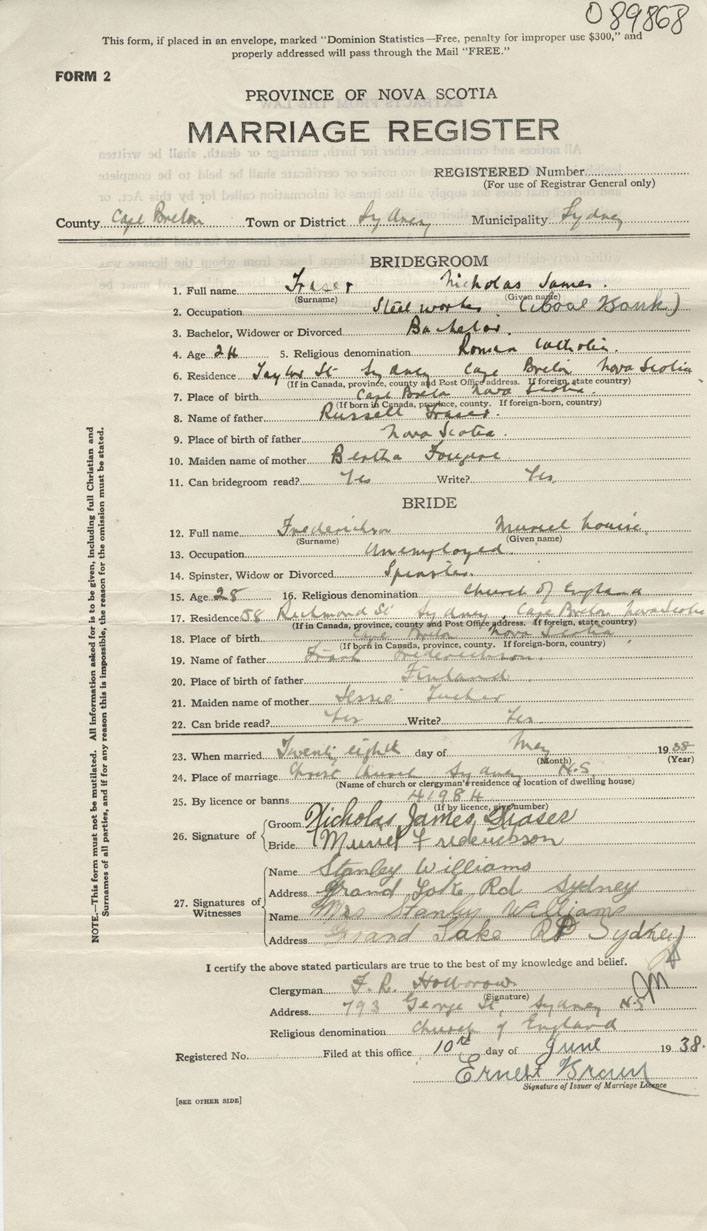 089868
This form, if placed in an envelope, marked "Dominion Statistics—Free, penalty for improper use $300," and
properly addressed will pass through the Mail "FREE."
FORM 2
PROVINCE OF NOVA SCOTIA
MARRIAGE REGISTER
REGISTERED Number
(For use of Registrar General only)
County Cape Breton Town or District Sydney Municipality Sydney
BRIDEGROOM
1. Full name Fraser Nicholas James.
(Surname) (Given name)
2. Occupation Steel works (Coal Bank)
3. Bachelor, Widower or Divorced Bachelor.
4. Age 24 5. Religious denomination Roman Catholic.
6. Residence Taylor St Sydney Cape Breton Nova Scotia
(If in Canada, province, county and Post Office address. If foreign, state country)
7. Place of birth Cape Breton Nova Scotia.
(If born in Canada, province, county. If foreign-born, country)
8. Name of father Russell Fraser.
9. Place of birth of father Nova Scotia.
10. Maiden name of mother Bertha Fougere
11. Can bridegroom read? Yes Write? Yes
BRIDE
12. Full name Frederickson Muriel Louise.
(Surname) (Given name)
13. Occupation Unemployed
14. Spinster, Widow or Divorced Spinster.
15. Age 28 16. Religious denomination Church of England
17. Residence 58 Richmond St Sydney, Cape Breton Nova Scotia
(If in Canada, province, county and Post Office address. If foreign, state country)
18. Place of birth Cape Breton Nova Scotia
(If born in Canada, province, county. If foreign-born, country)
19. Name of father Frank Frederickson.
20. Place of birth of father Finland
21. Maiden name of mother Jessie Tucker
22. Can bride read? Yes Write? Yes
23. When married Twenty eighth day of May 1938
(Month) (Year)
24. Place of marriage Christ Church Sydney N.S.
(Name of church or clergyman's residence or location of dwelling house)
25. By licence or banns 41984
(If by licence, give number)
26. Signature of
Groom Nicholas James Fraser
Bride Muriel Frederickson
27. Signatures of Witnesses
Name Stanley Williams
Address Grand Lake Rd Sydney
Name Mrs Stanley Williams
Address Grand Lake Rd Sydney
I certify the above stated particulars are true to the best of my knowledge and belief.
Clergyman F. R. Holborow
(Signature)
Address 793 George St, Sydney N.S
Religious denomination Church of England
Registered No. Filed at this office 10th day of June 1938.
Ernest Brown
Signature of Issuer of Marriage Licence
[SEE OTHER SIDE]
NOTE.—This form must not be mutilated. All information asked for is to be given, including full Christian and
Surnames of all parties, and if for any reason this is impossible, the reason for the omission must be stated.